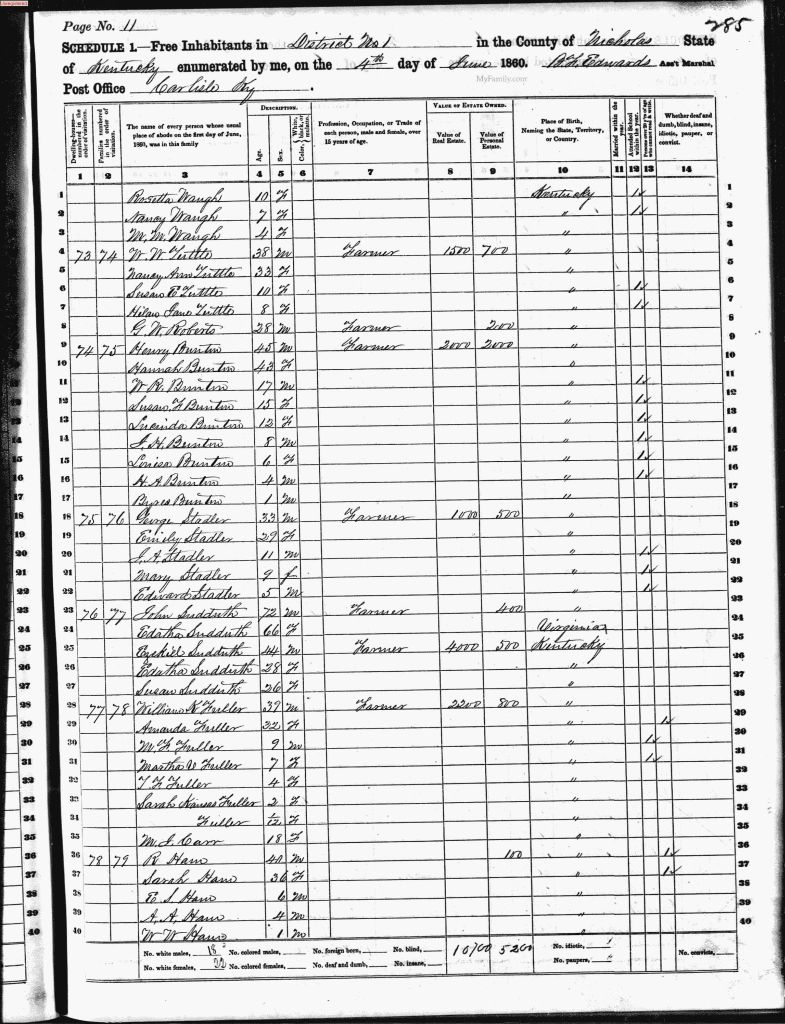 Page No. 11
285
SCHEDULE 1.—Free Inhabitants in District No 1 in the County of Nicholas State
of Kentucky enumerated by me, on the 4th day of June 1860. B. F. Edwards Ass't Marshal
MyFamily.com
Post Office Carlisle Ky
Dwelling-houses—numbered in the order of visitation.
Families numbered in the order of visitation.
The name of every person whose usual place of abode on the first day of June, 1860, was in this family
DESCRIPTION.
Age.
Sex.
Color, White, black, or mulatto.
Profession, Occupation, or Trade of each person, male and female, over 15 years of age.
VALUE OF ESTATE OWNED.
Value of Real Estate.
Value of Personal Estate.
Place of Birth, Naming the State, Territory, or Country.
Married within the year.
Attended School within the year.
Whether deaf and dumb, blind, insane, idiotic, pauper, or convict.
1 2 3 4 5 6 7 8 9 10 11 12 13 14
1 Rosetta Waugh 10 F Kentucky 1 1
2 Nancy Waugh 7 F " 1 2
3 M. M. Waugh 4 F " 3
4 73 74 W. W. Tuttle 38 M Farmer 1500 700 " 4
5 Nancy Ann Tuttle 33 F " 5
6 Susan E Tuttle 10 F " 1 6
7 Jane Tuttle 8 F " 1 7
8 G. W. Roberts 28 M Farmer 200 " 8
9 74 75 Henry Bunton 45 M Farmer 2000 2000 " 9
10 Hannah Bunton 43 F " 10
11 W R. Bunton 17 M " 1 11
12 Susan F Bunton 15 F " 1 12
13 Lucinda Bunton 12 F " 1 13
14 J. H. Bunton 8 M " 1 14
15 Louisa Bunton 6 F " 1 15
16 H. A Bunton 4 M " 1 16
17 Bunton 1 M " 17
18 75 76 George Stadler 33 M Farmer 1000 500 " 18
19 Emily Stadler 29 F " 19
20 J. A. Stadler 11 M " 1 20
21 Mary Stadler 9 f " 1 21
22 Edward Stadler 5 M " 1 22
23 76 77 John Sudduth 72 M Farmer 400 " 23
24 Edatha Sudduth 66 F Virginia 24
25 Ezekiel Sudduth 44 M Farmer 4000 500 Kentucky 25
26 Edatha Sudduth 28 F " 26
27 Susan Sudduth 26 F " 27
28 77 78 William K Fuller 39 M Farmer 2200 800 " 28
29 Amanda Fuller 32 F " 1 29
30 M. F. Fuller 9 M " 1 30
31 Martha V Fuller 7 F " 1 31
32 T F Fuller 4 F " 32
33 Sarah Kansas Fuller 2 F " 33
34 Fuller /12 F " 34
35 M. J. Carr 18 F " 35
36 78 79 R Ham 40 M 100 " 1 36
37 Sarah Ham 36 F " 1 37
38 E. S. Ham 6 M " 38
39 A. A. Ham 4 M " 39
40 W W Ham 1 M " 40
No. white males, 18 No. colored males, No. foreign born, No. blind, 10700 5200 No. idiotic, No. convicts,
No. white females, 22 No. colored females, No. deaf and dumb, No. insane, No. paupers,